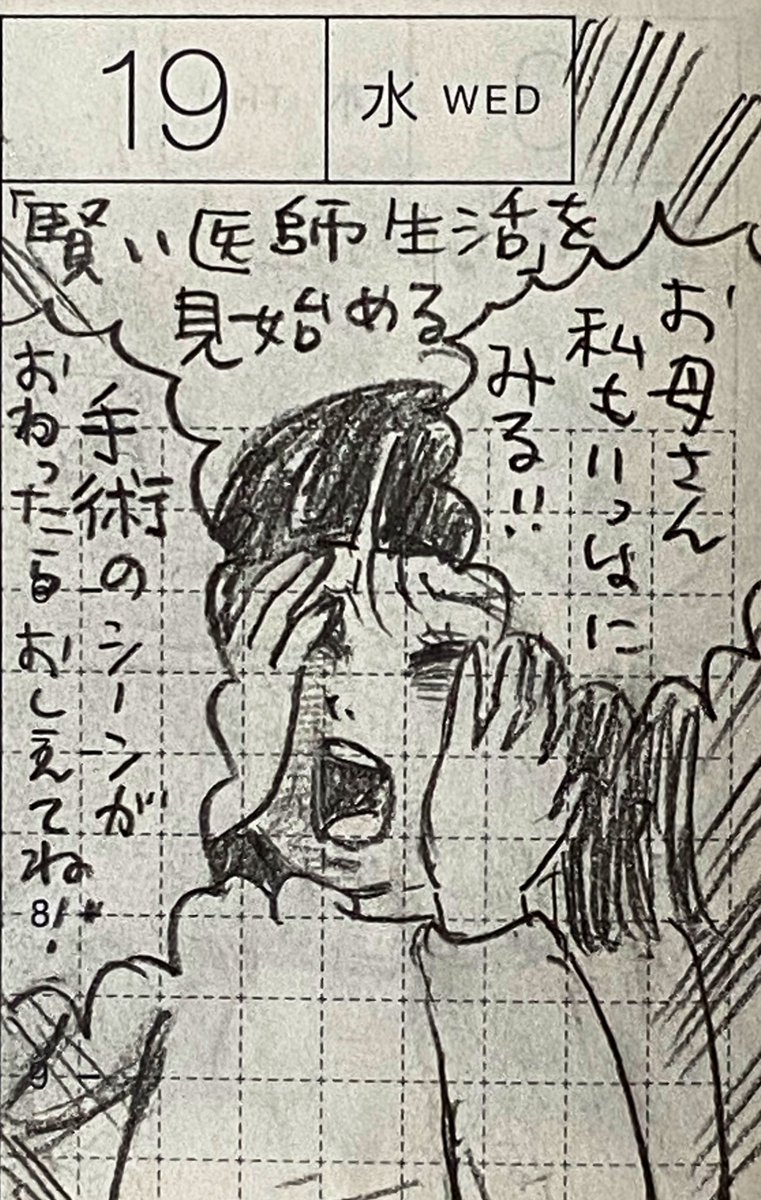 19
水 WED
「賢い医師生活」を
見始める
お母さん
私もいっしょに
みる!!
手術のシーンが
おわったらおしえてね!
8
9